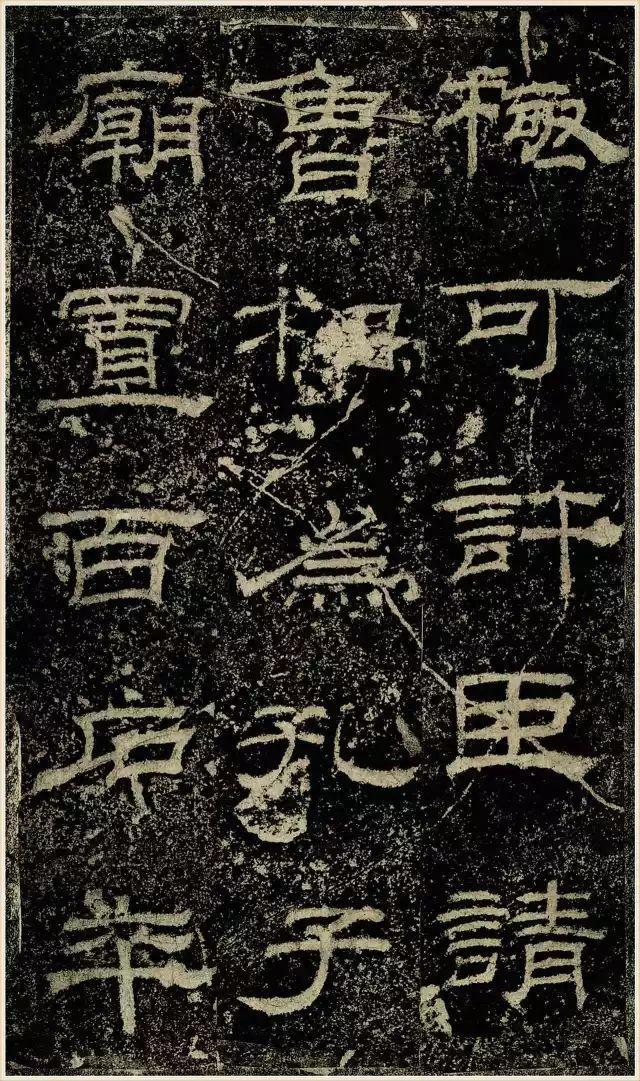 極可許臣請
魯相為孔子
廟置百石卒